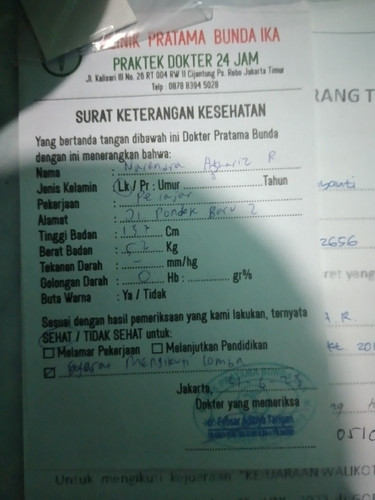 KLINIK PRATAMA BUNDA IKA
PRAKTEK DOKTER 24 JAM
Jl. Kalisari III No. 26 RT 004 RW 11 Cijantung Ps. Rebo Jakarta Timur
Telp : 0878 8394 5028
SURAT KETERANGAN KESEHATAN
Yang bertanda tangan dibawah ini Dokter Pratama Bunda
dengan ini menerangkan bahwa:
Nama : R
Jenis Kelamin : Lk / Pr : Umur 8 Tahun
Pekerjaan : Pelajar
Alamat : Jl Pondok Baru 2
Tinggi Badan : 137 Cm
Berat Badan : 52 Kg
Tekanan Darah : - mm/hg
Golongan Darah : O Hb : gr%
Buta Warna : Ya / Tidak
Sesuai dengan hasil pemeriksaan yang kami lakukan, ternyata
SEHAT / TIDAK SEHAT untuk:
Melamar Pekerjaan Melanjutkan Pendidikan
mengikuti lomba
Jakarta,
Dokter yang memeriksa
RANG T
2656
ret yang
A R.
kt. 201
0510
Untuk mengikuti kejuaraan "KEJUARAAN WALIKOT